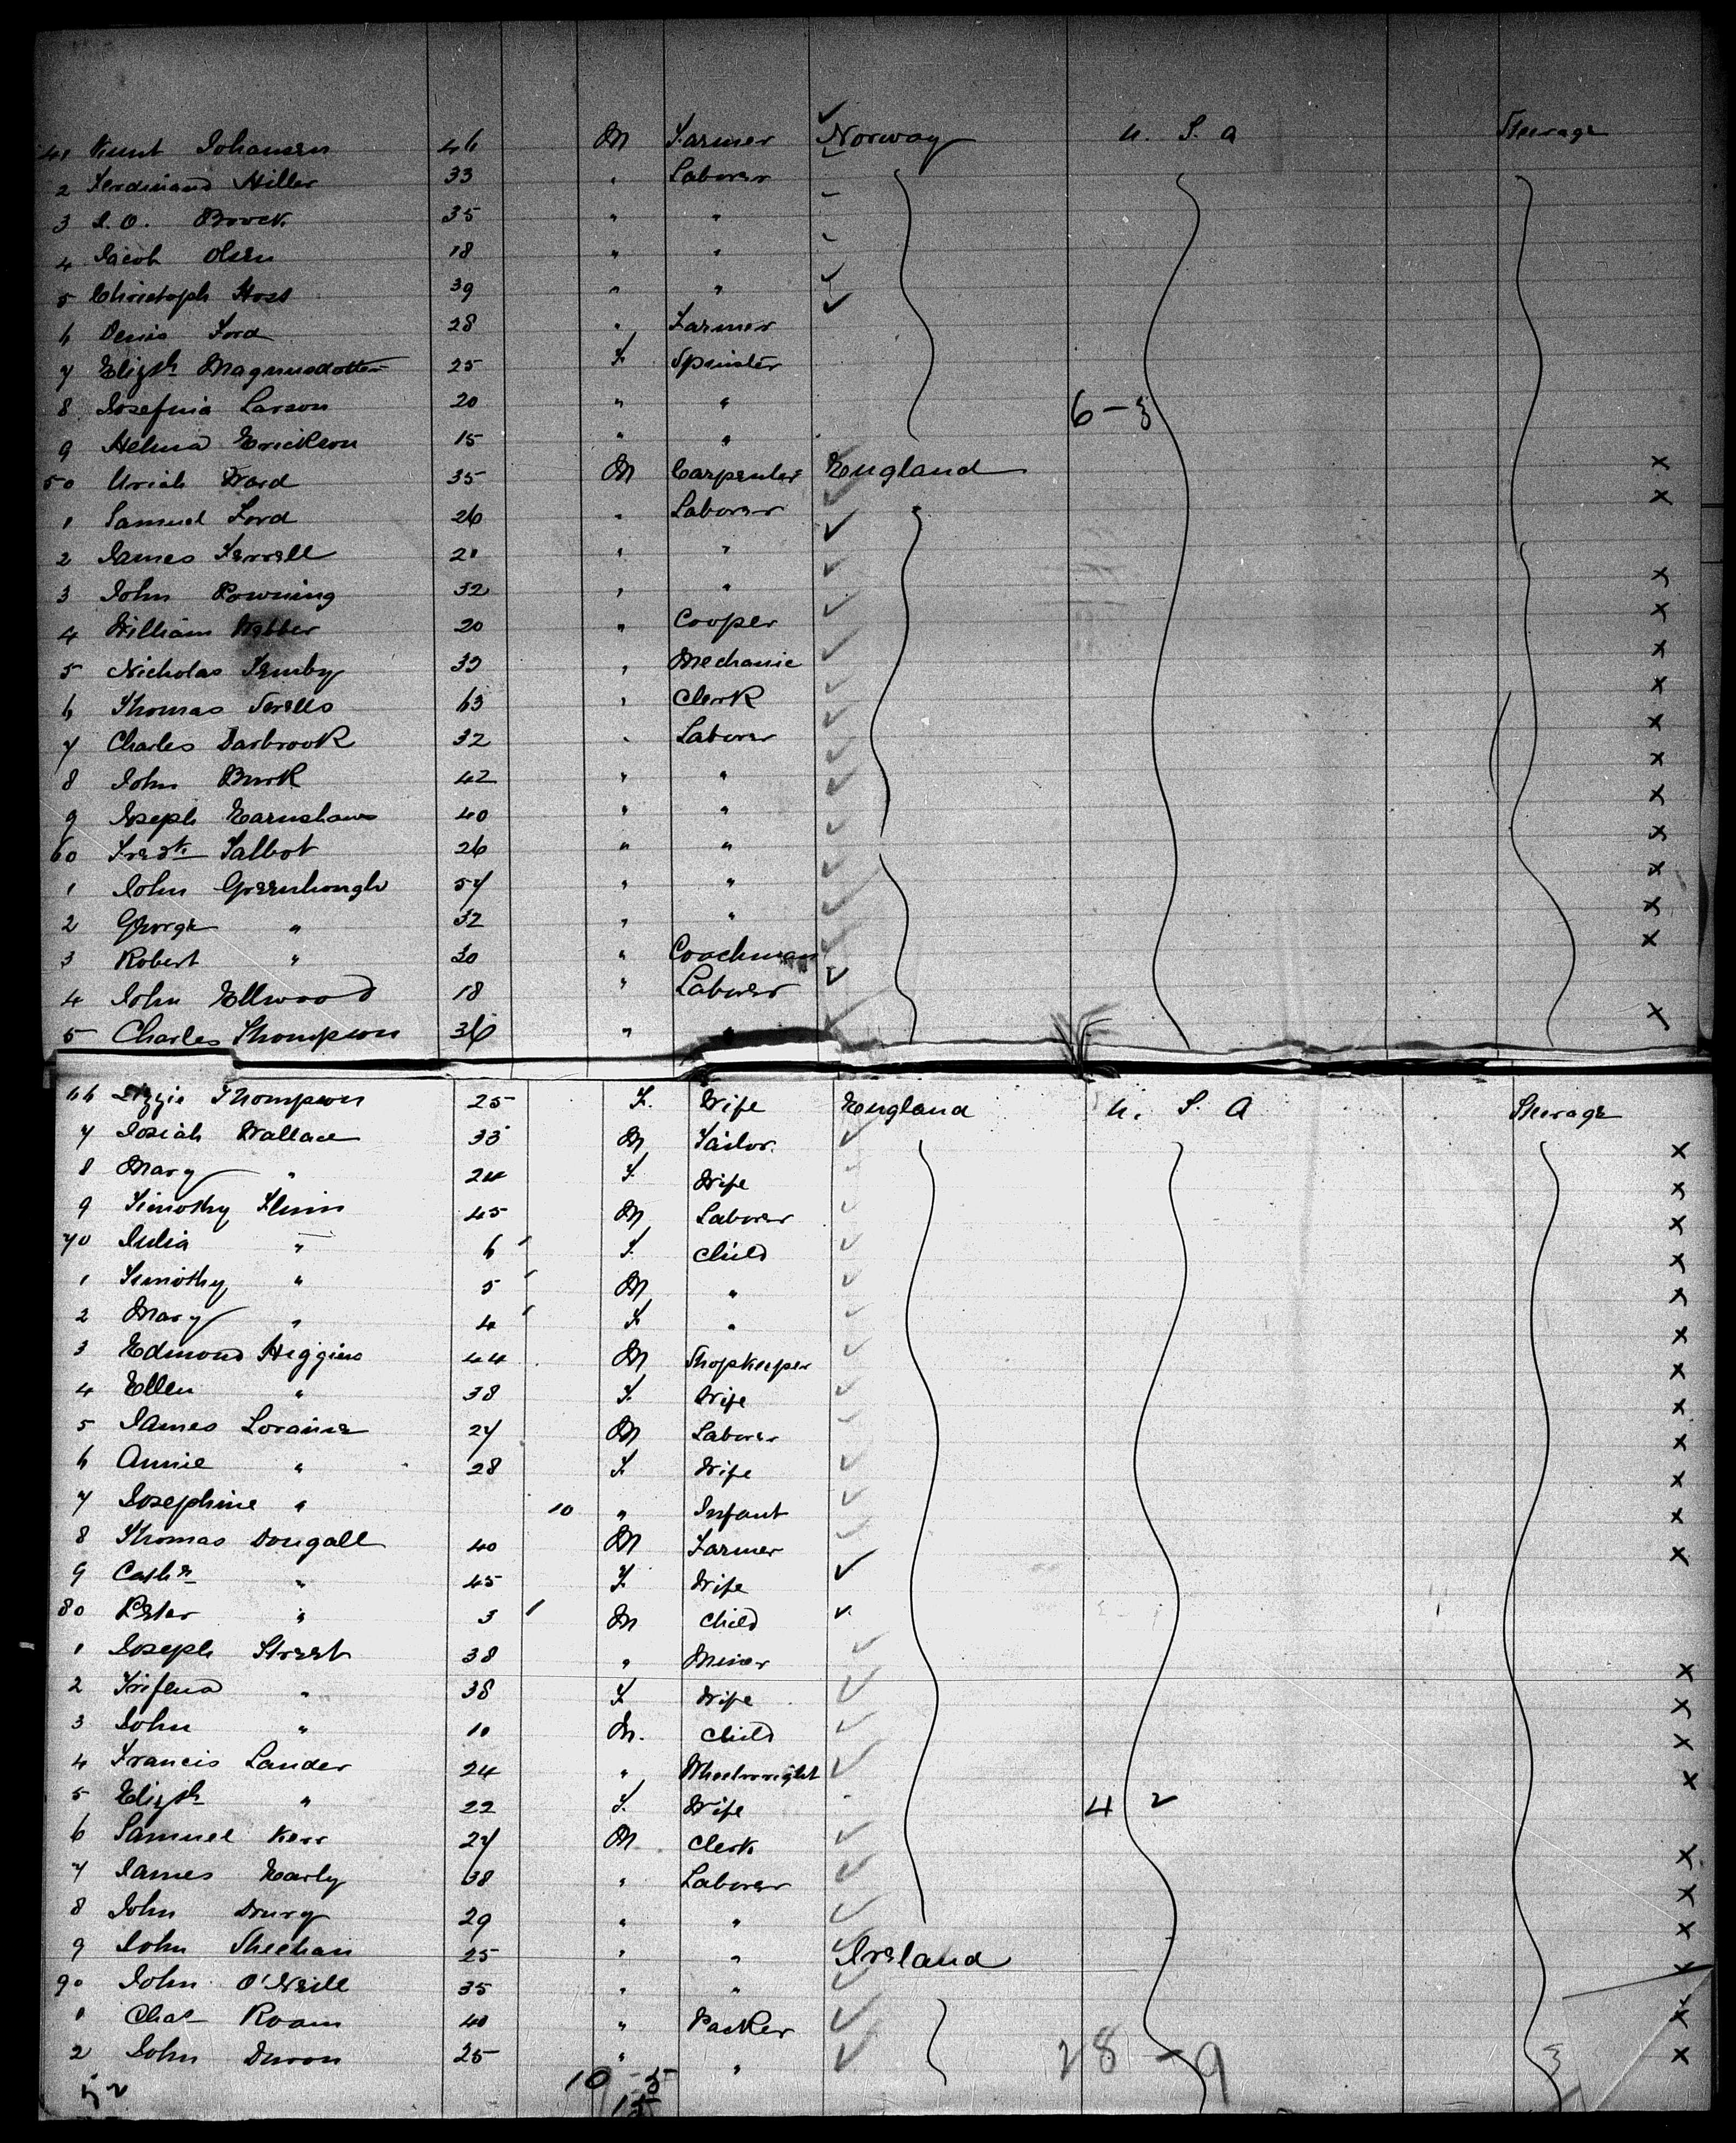 41 Knut Johansen 46 M Farmer Norway U. S. A Steerage
2 Ferdinand Hiller 33 " Laborer
3 J. O. Brock 35 " "
4 Jacob Olsen 18 " "
5 Christoph Hoss 39 " "
6 Denis Ford 28 " Farmer
7 Elizth Magnusdotter 25 F Spinster
8 Josefina Larson 20 " " 6-3
9 Helma Erickson 15 " "
50 Uriah Ward 35 M Carpenter England x
1 Samuel Ford 26 " Laborer x
2 James Ferrell 21 " "
3 John Powning 32 " " x
4 William Webber 20 " Cooper x
5 Nicholas 39 " Mechanic x
6 Thomas 63 " Clerk x
7 Charles Darbrook 32 " Laborer x
8 John Burk 42 " " x
9 Joseph Earnshaw 40 " " x
60 Fredk Talbot 26 " " x
1 John Greenhough 57 " " x
2 George " 32 " " x
3 Robert " 30 " Coachman x
4 John Ellwood 18 " Laborer
5 Charles Thompson 36 " " x
66 Lizzie Thompson 25 F. Wife England U. S. A Steerage
7 Josiah Wallace 33 M Tailor. x
8 Mary " 24 F. Wife x
9 Timothy Flinn 45 M Laborer x
70 Julia " 6 F. Child x
1 Timothy " 5 M " x
2 Mary " 4 F " x
3 Edmond Higgins 44 M Shopkeeper x
4 Ellen " 38 F. Wife x
5 James Loraine 27 M Laborer x
6 Annie " 28 F. Wife x
7 Josephine " 10 " Infant x
8 Thomas Dougall 40 M Farmer x
9 Cathe " 45 F. Wife
80 Peter " 3 M Child
1 Joseph Street 38 " Miner x
2 Trifena " 38 F Wife x
3 John " 10 M. Child x
4 Francis Lander 24 " Wheelwright x
5 Elizth " 22 F. Wife 4 2
6 Samuel Kerr 27 M Clerk x
7 James Early 38 " Laborer x
8 John Drury 29 " " x
9 John Sheehan 25 " " Ireland x
90 John O'Neill 35 " "
1 Chas Roam 40 " Packer x
2 John 25 " " 28-9 x
52 10-5
15